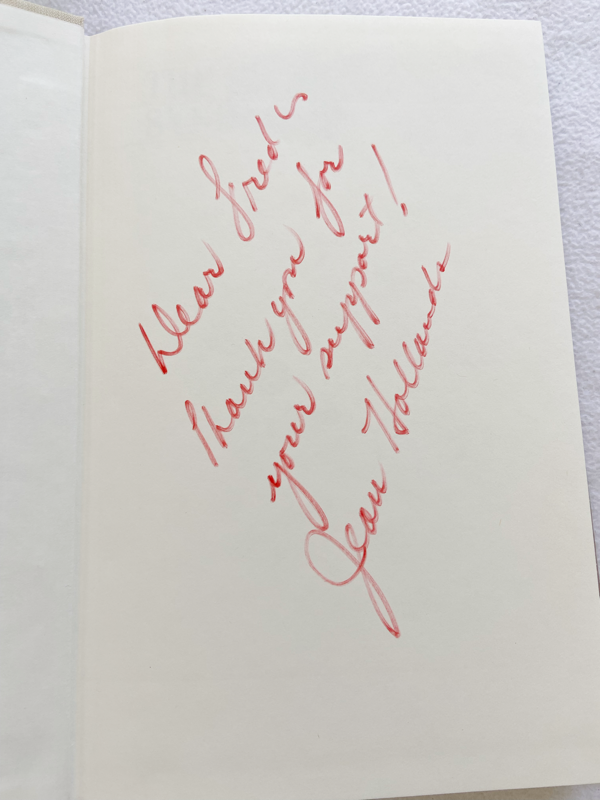 Dear Fred
Thank you for
your support!
Jean Hollands